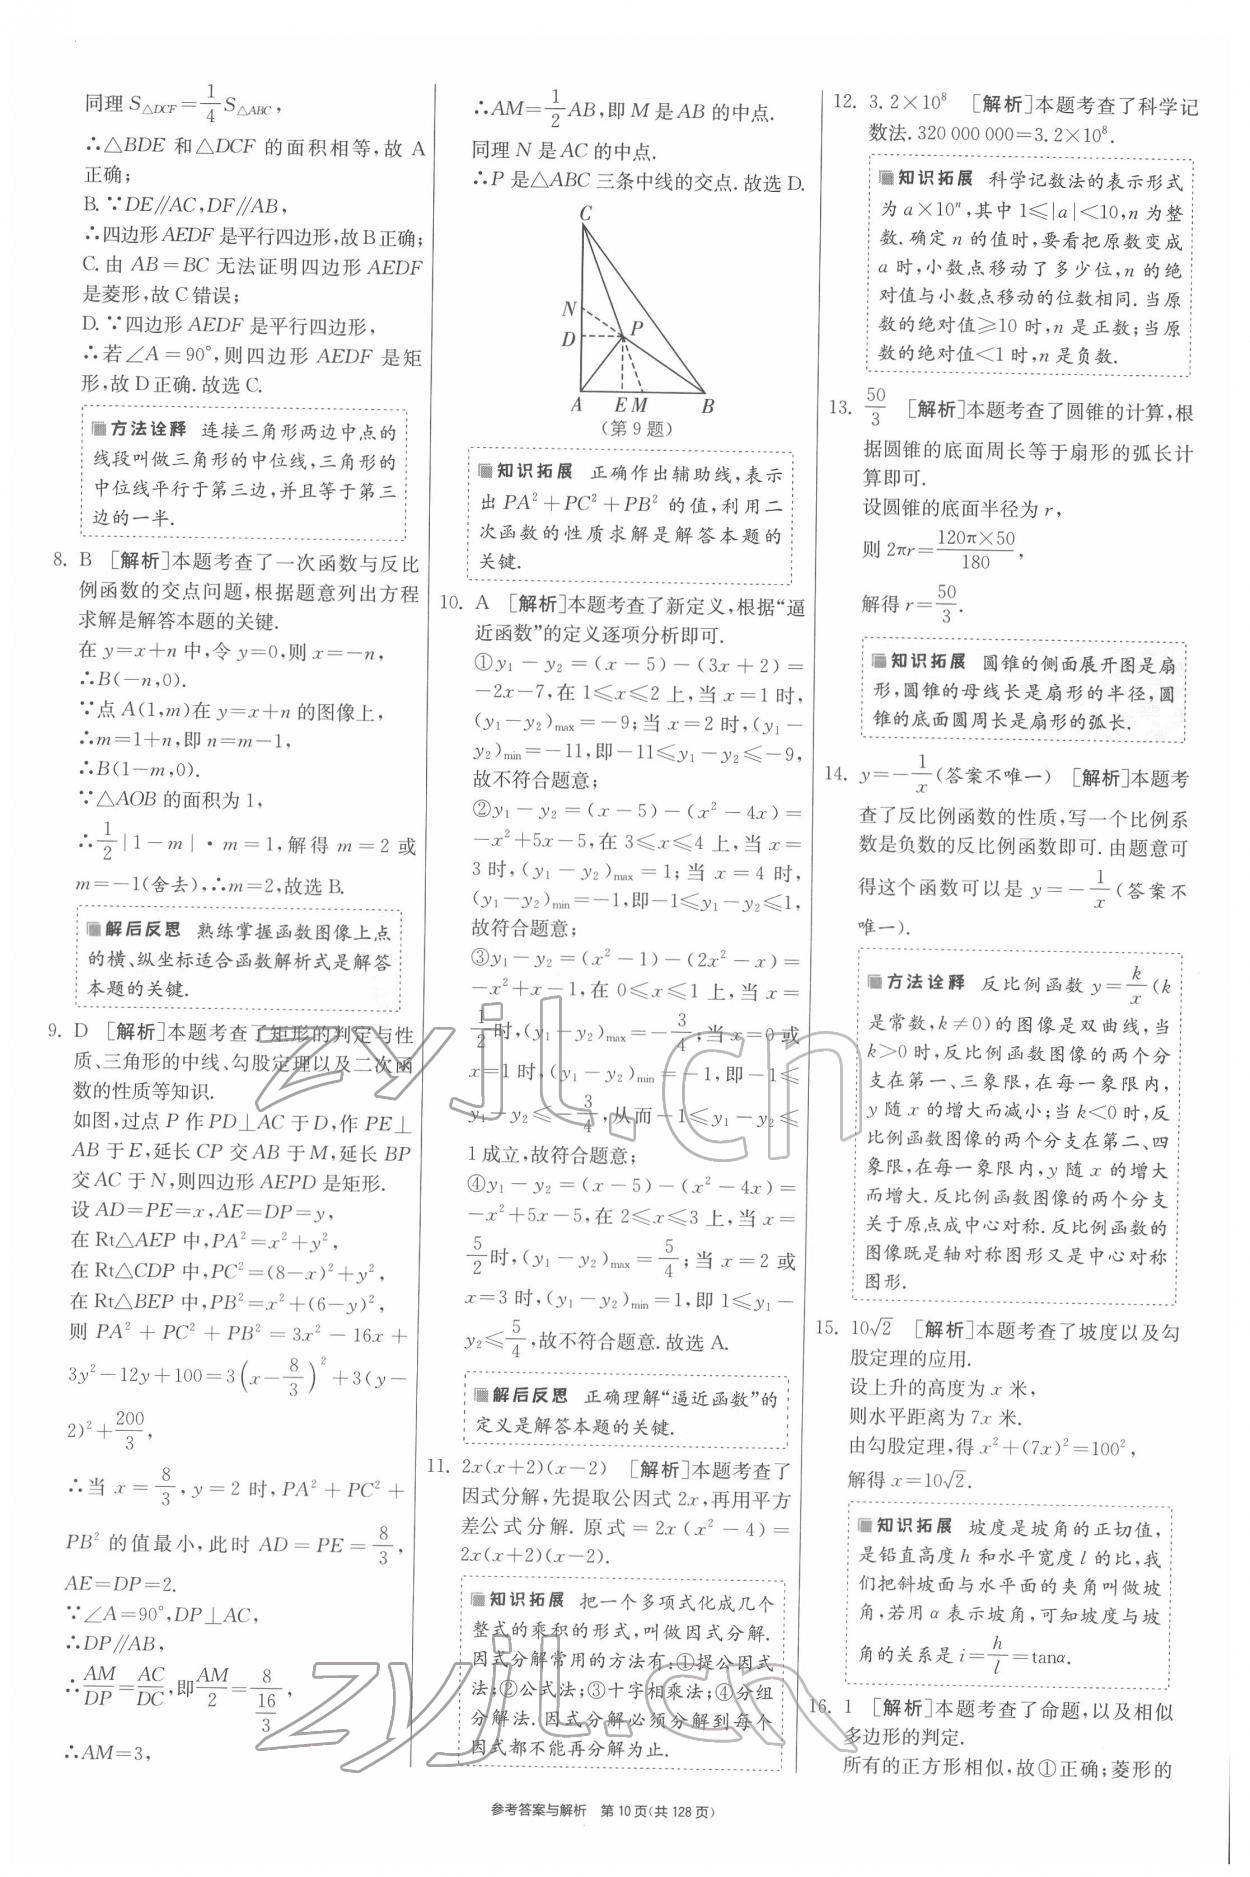 同理 S△DCF=1/4 S△ABC,
∴△BDE 和△DCF 的面积相等,故 A
正确;
B.∵DE∥AC,DF∥AB,
∴四边形 AEDF 是平行四边形,故 B 正确;
C.由 AB=BC 无法证明四边形 AEDF
是菱形,故 C 错误;
D.∵四边形 AEDF 是平行四边形,
∴若∠A=90°,则四边形 AEDF 是矩
形,故 D 正确.故选 C.
方法诠释 连接三角形两边中点的
线段叫做三角形的中位线,三角形的
中位线平行于第三边,并且等于第三
边的一半.
8. B [解析]本题考查了一次函数与反比
例函数的交点问题,根据题意列出方程
求解是解答本题的关键.
在 y=x+n 中,令 y=0,则 x=-n,
∴B(-n,0).
∵点 A(1,m)在 y=x+n 的图像上,
∴m=1+n,即 n=m-1,
∴B(1-m,0).
∵△AOB 的面积为 1,
∴1/2|1-m|·m=1,解得 m=2 或
m=-1(舍去),∴m=2,故选 B.
解后反思 熟练掌握函数图像上点
的横、纵坐标适合函数解析式是解答
本题的关键.
9. D [解析]本题考查了矩形的判定与性
质、三角形的中线、勾股定理以及二次函
数的性质等知识.
如图,过点 P 作 PD⊥AC 于 D,作 PE⊥
AB 于 E,延长 CP 交 AB 于 M,延长 BP
交 AC 于 N,则四边形 AEPD 是矩形.
设 AD=PE=x,AE=DP=y,
在 Rt△AEP 中,PA²=x²+y²,
在 Rt△CDP 中,PC²=(8-x)²+y²,
在 Rt△BEP 中,PB²=x²+(6-y)²,
则 PA²+PC²+PB²=3x²-16x+
3y²-12y+100=3(x-8/3)²+3(y-
2)²+200/3,
∴当 x=8/3,y=2 时,PA²+PC²+
PB² 的值最小,此时 AD=PE=8/3,
AE=DP=2.
∵∠A=90°,DP⊥AC,
∴DP∥AB,
∴AM/DP=AC/DC,即AM/2=8/(16/3),
∴AM=3,
∴AM=1/2AB,即 M 是 AB 的中点.
同理 N 是 AC 的中点.
∴P 是△ABC 三条中线的交点.故选 D.
C
N
P
D
A E M B
(第 9 题)
知识拓展 正确作出辅助线,表示
出 PA²+PC²+PB² 的值,利用二
次函数的性质求解是解答本题的
关键.
10. A [解析]本题考查了新定义,根据“逼
近函数”的定义逐项分析即可.
①y₁-y₂=(x-5)-(3x+2)=
-2x-7,在 1≤x≤2 上,当 x=1 时,
(y₁-y₂)max=-9;当 x=2 时,(y₁-
y₂)min=-11,即-11≤y₁-y₂≤-9,
故不符合题意;
②y₁-y₂=(x-5)-(x²-4x)=
-x²+5x-5,在 3≤x≤4 上,当 x=
3 时,(y₁-y₂)max=1;当 x=4 时,
(y₁-y₂)min=-1,即-1≤y₁-y₂≤1,
故符合题意;
③y₁-y₂=(x²-1)-(2x²-x)=
-x²+x-1,在 0≤x≤1 上,当 x=
1/2时,(y₁-y₂)max=-3/4;当 x=0 或
x=1 时,(y₁-y₂)min=-1,即-1≤
y₁-y₂≤-3/4,从而-1≤y₁-y₂≤
1 成立,故符合题意;
④y₁-y₂=(x-5)-(x²-4x)=
-x²+5x-5,在 2≤x≤3 上,当 x=
5/2时,(y₁-y₂)max=5/4;当 x=2 或
x=3 时,(y₁-y₂)min=1,即 1≤y₁-
y₂≤5/4,故不符合题意.故选 A.
解后反思 正确理解“逼近函数”的
定义是解答本题的关键.
11. 2x(x+2)(x-2) [解析]本题考查了
因式分解,先提取公因式 2x,再用平方
差公式分解.原式=2x(x²-4)=
2x(x+2)(x-2).
知识拓展 把一个多项式化成几个
整式的乘积的形式,叫做因式分解.
因式分解常用的方法有:①提公因式
法;②公式法;③十字相乘法;④分组
分解法.因式分解必须分解到每个
因式都不能再分解为止.
12. 3.2×10⁸ [解析]本题考查了科学记
数法.320 000 000=3.2×10⁸.
知识拓展 科学记数法的表示形式
为 a×10ⁿ,其中 1≤|a|<10,n 为整
数.确定 n 的值时,要看把原数变成
a 时,小数点移动了多少位,n 的绝
对值与小数点移动的位数相同.当原
数的绝对值≥10 时,n 是正数;当原
数的绝对值<1 时,n 是负数.
13. 50/3 [解析]本题考查了圆锥的计算,根
据圆锥的底面周长等于扇形的弧长计
算即可.
设圆锥的底面半径为 r,
则 2πr=120π×50/180,
解得 r=50/3.
知识拓展 圆锥的侧面展开图是扇
形,圆锥的母线长是扇形的半径,圆
锥的底面圆周长是扇形的弧长.
14. y=-1/x(答案不唯一) [解析]本题考
查了反比例函数的性质,写一个比例系
数是负数的反比例函数即可.由题意可
得这个函数可以是 y=-1/x(答案不
唯一).
方法诠释 反比例函数 y=k/x(k
是常数,k≠0)的图像是双曲线,当
k>0 时,反比例函数图像的两个分
支在第一、三象限,在每一象限内,
y 随 x 的增大而减小;当 k<0 时,反
比例函数图像的两个分支在第二、四
象限,在每一象限内,y 随 x 的增大
而增大.反比例函数图像的两个分支
关于原点成中心对称.反比例函数的
图像既是轴对称图形又是中心对称
图形.
15. 10√2 [解析]本题考查了坡度以及勾
股定理的应用.
设上升的高度为 x 米,
则水平距离为 7x 米.
由勾股定理,得 x²+(7x)²=100²,
解得 x=10√2.
知识拓展 坡度是坡角的正切值,
是铅直高度 h 和水平宽度 l 的比,我
们把斜坡面与水平面的夹角叫做坡
角,若用 α 表示坡角,可知坡度与坡
角的关系是 i=h/l=tanα.
16. 1 [解析]本题考查了命题,以及相似
多边形的判定.
所有的正方形相似,故①正确;菱形的
参考答案与解析 第 10 页(共 128 页)
zyjl.cn
zyjl.cn